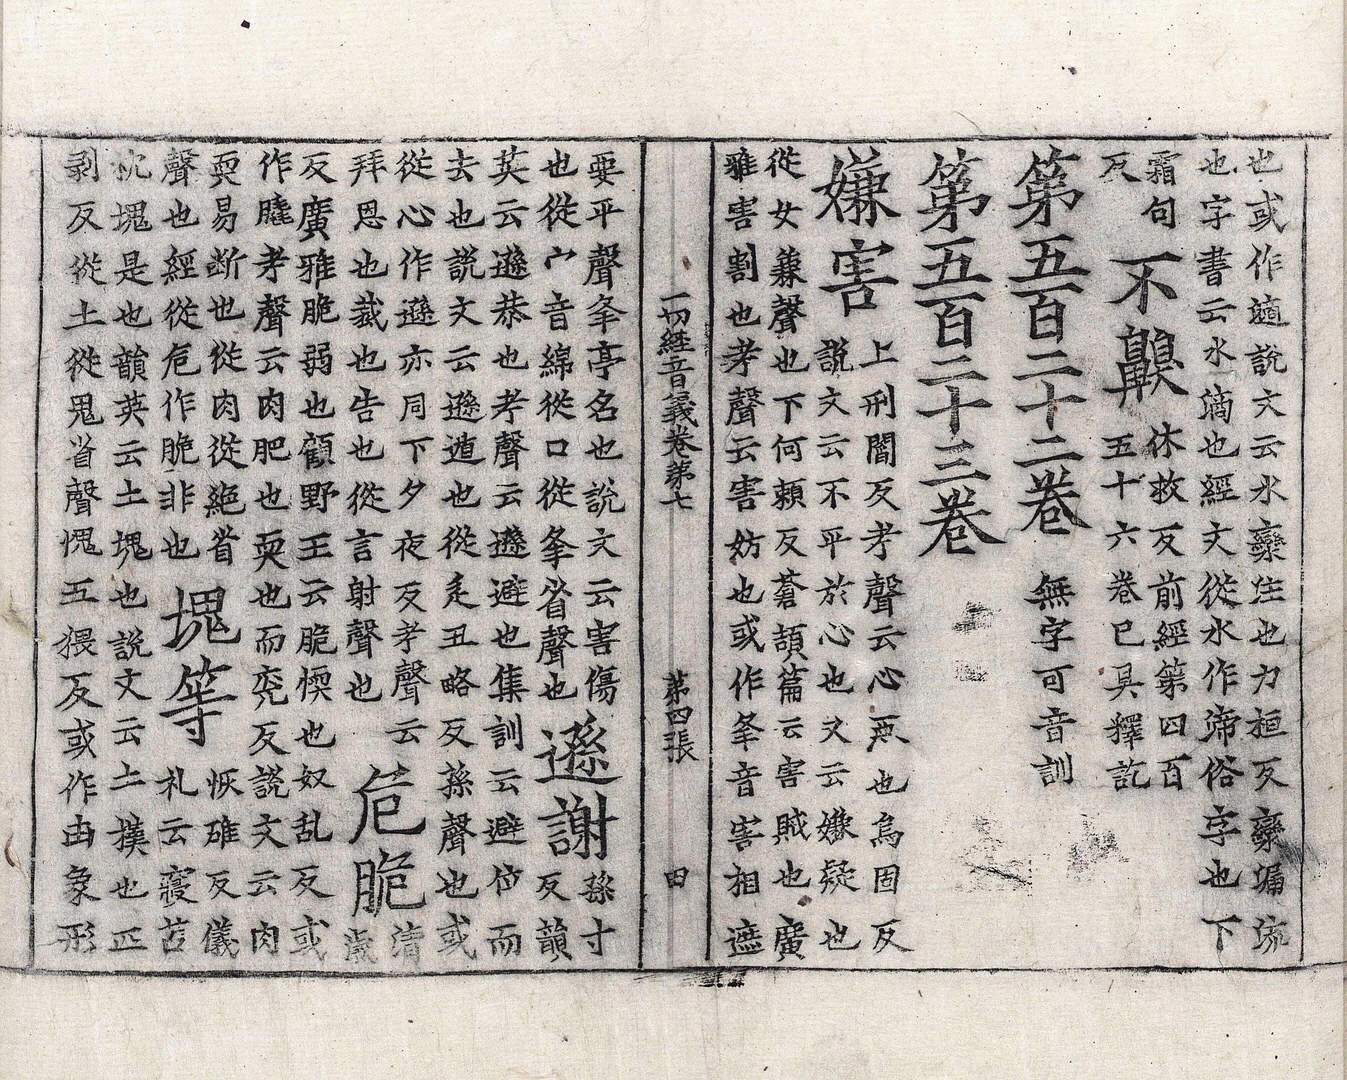 也或作適說文云水欒注也力桓反欒漏流
也字書云水滴也經文從水作啼俗字也下
霜句
反
不齅
休救反前經第四百
五十六卷已具釋訖
第五百二十二卷 無字可音訓
第五百二十三卷
嫌害
上刑閻反考聲云心惡也烏固反
說文云不平於心也又云嫌疑也
從女兼聲也下何賴反蒼頡篇云害賊也廣
雅害割也考聲云害妨也或作夆音害相遮
一切經音義卷第七 第四張 田
要平聲夆亭名也說文云害傷
也從宀音綿從口從夆省聲也
遜謝
孫寸
反韻
英云遜恭也考聲云遜避也集訓云避位而
去也說文云遜遁也從辵丑略反孫聲也或
從心作遜亦同下夕夜反考聲云
拜恩也也告也從言射聲也
危脆
清
歲
反廣雅脆弱也顧野王云脆愞也奴亂反或
作膬考聲云肉肥也耎也而兖反說文云肉
耎易斷也從肉從絕省
聲也經從危作脆非也
塊等
恢磓反儀
札云寢苫
枕塊是也韻英云土塊也說文云土墣也疋
剥反從土從鬼省聲愧五猥反或作凷象形